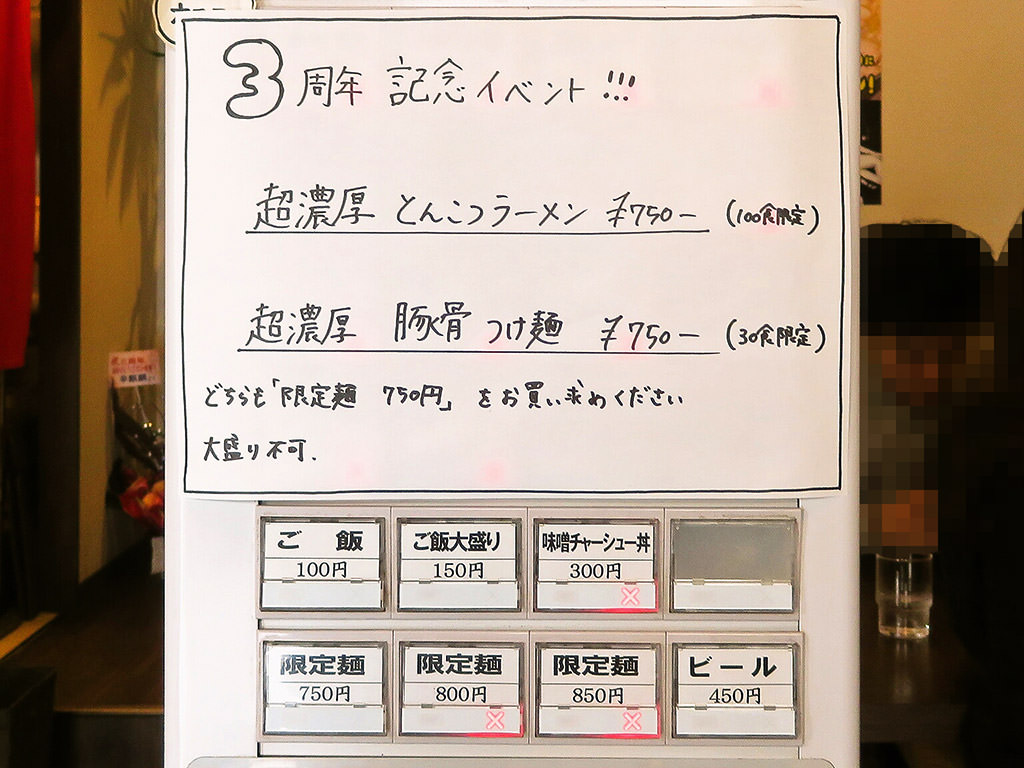 3周年 記念イベント!!!
超濃厚 とんこつラーメン ¥750− (100食限定)
超濃厚 豚骨 つけ麺 ¥750− (30食限定)
どちらも「限定麺 750円」をお買い求めください
大盛り不可.
ご飯
100円
ご飯大盛り
150円
味噌チャーシュー丼
300円
×
限定麺
750円
限定麺
800円
×
限定麺
850円
×
ビール
450円